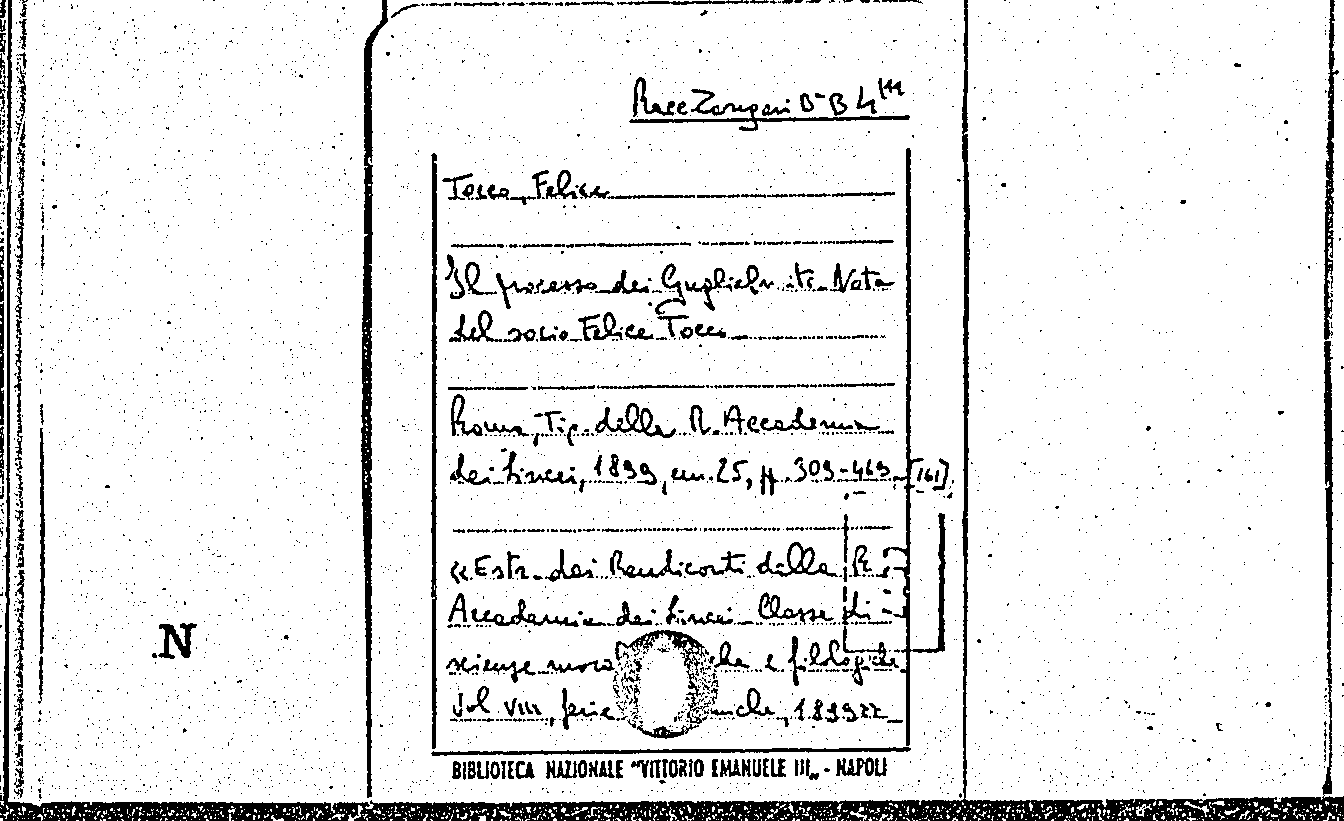 Race. Zangari B- B 4
Tocco, Felice
Il processo dei Guglielmiti. Nota
del socio Felice Tocco
Roma, Tip. della R. Accademia
dei Lincei, 1899, cm. 25, pp. 309-469 [161]
«Estr. dai Rendiconti della R.
Accademia dei Lincei. Classe di
scienze mora che e filologiche
Vol VIII, che, 1899»
N
BIBLIOTECA NAZIONALE "VITTORIO EMANUELE III„ - NAPOLI